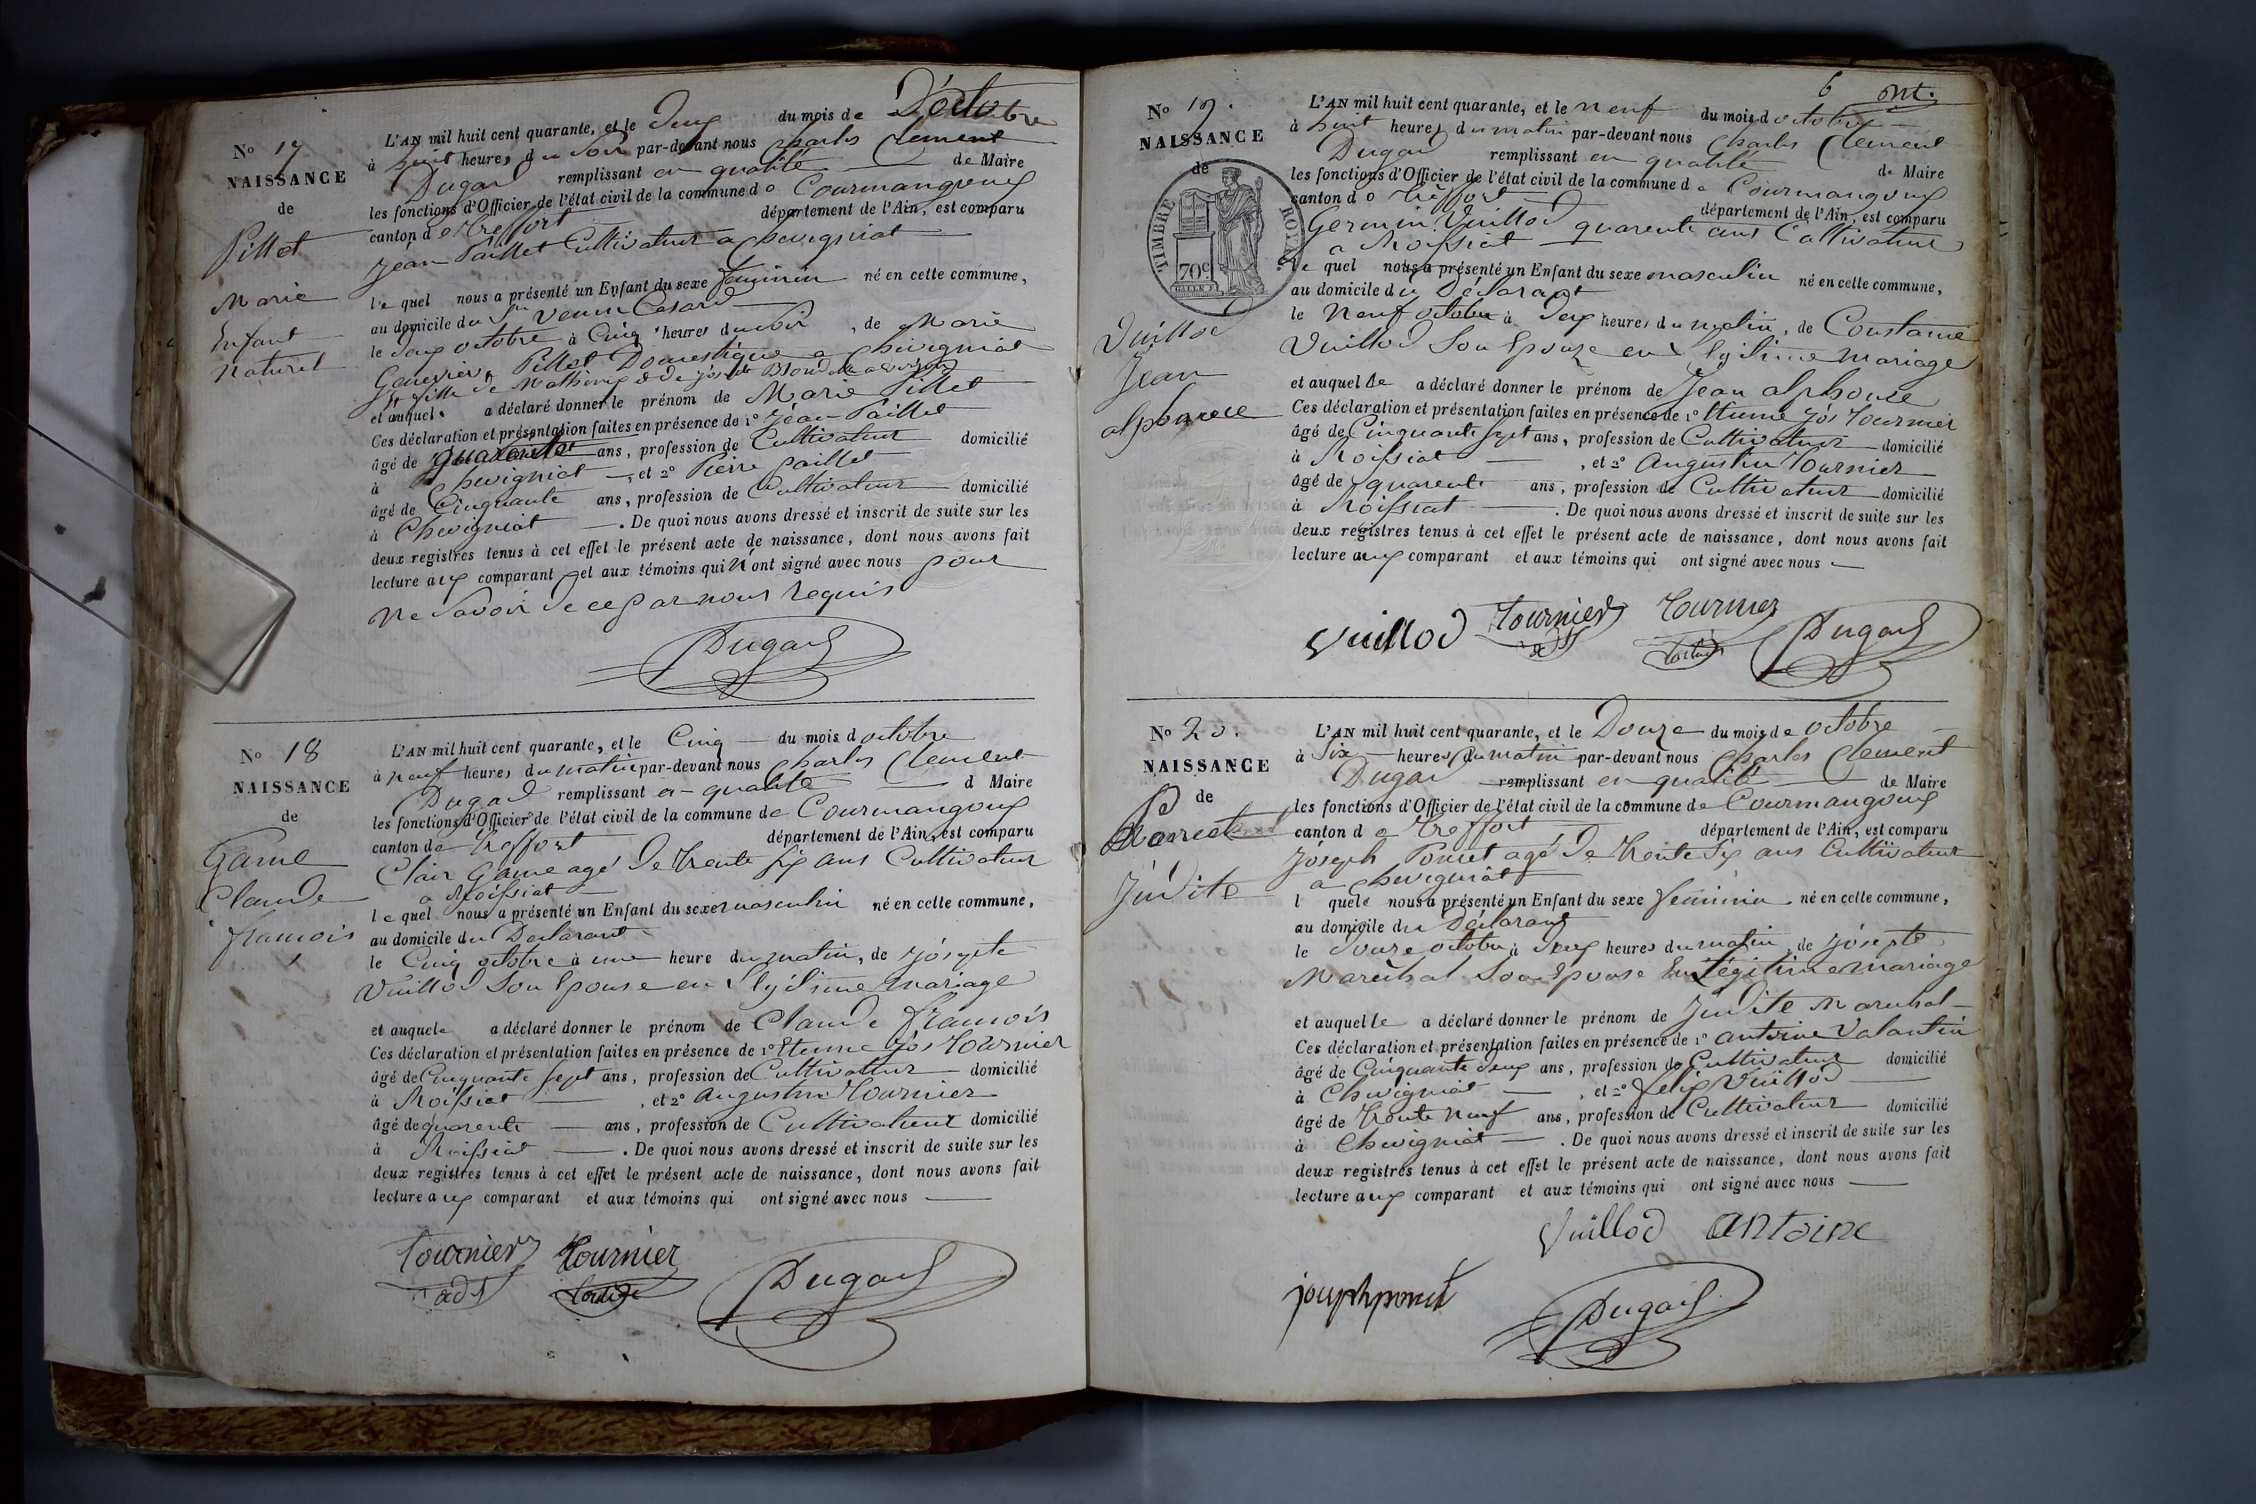 N° 17
NAISSANCE
de
Pillot
Marie
Enfant
naturel
L'AN mil huit cent quarante, et le deux du mois de D'octobre
à huit heures du soir par-devant nous Charles Clement
Dugad remplissant en qualité de Maire
les fonctions d'Officier de l'état civil de la commune de Courmangoux
canton de Treffort département de l'Ain, est comparu
Jean Paillet Cultivateur a Chevigniat
le quel nous a présenté un Enfant du sexe feminin né en cette commune,
au domicile du Sr
le deux octobre à Cinq heures du soir, de Marie
Genevieve Pillet Domestique a Chevigniat
fille de
et auquel a déclaré donner le prénom de Marie Pillet
Ces déclaration et présentation faites en présence de 1° Jean Paillet
âgé de quarante ans, profession de Cultivateur domicilié
à Chevigniat, et 2° Pierre Paillet
âgé de Cinquante ans, profession de Cultivateur domicilié
à Chevigniat. De quoi nous avons dressé et inscrit de suite sur les
deux registres tenus à cet effet le présent acte de naissance, dont nous avons fait
lecture aux comparant et aux témoins qui n'ont signé avec nous pour
ne savoir de ce par nous requis
Dugad
N° 18
NAISSANCE
de
Game
Claude
françois
L'AN mil huit cent quarante, et le Cinq du mois d octobre
à neuf heures du matin par-devant nous Charles Clement
Dugad remplissant en qualité d Maire
les fonctions d'Officier de l'état civil de la commune de Courmangoux
canton de Treffort département de l'Ain, est comparu
Clair Game agé de trente six ans Cultivateur
a Roissiat
le quel nous a présenté un Enfant du sexe masculin né en cette commune,
au domicile du Declarant
le Cinq octobre à une heure du matin, de Josepte
Vuillod Son Epouse en legitime mariage
et auquel le a déclaré donner le prénom de Claude françois
Ces déclaration et présentation faites en présence de 1° Etienne Jos Tournier
âgé de Cinquante sept ans, profession de Cultivateur domicilié
à Roissiat, et 2° Augustin Tournier
âgé de quarente ans, profession de Cultivateur domicilié
à Roissiat. De quoi nous avons dressé et inscrit de suite sur les
deux registres tenus à cet effet le présent acte de naissance, dont nous avons fait
lecture aux comparant et aux témoins qui ont signé avec nous
Tournier Tournier
Dugad
6
N° 19.
NAISSANCE
de
TIMBRE ROYAL
70c
Vuillod
Jean
alphonce
L'AN mil huit cent quarante, et le neuf du mois d octobre
à huit heures du matin par-devant nous Charles Clement
Dugad remplissant en qualité de Maire
les fonctions d'Officier de l'état civil de la commune de Courmangoux
canton de Treffort département de l'Ain, est comparu
Germain Vuillod quarente ans Cultivateur
a Roissiat
le quel nous a présenté un Enfant du sexe masculin né en cette commune,
au domicile du Déclarant
le neuf octobre à deux heures du matin, de Constance
Vuillod Son Epouze en legitime mariage
et auquel le a déclaré donner le prénom de Jean alphonse
Ces déclaration et présentation faites en présence de 1° Etienne Jos Tournier
âgé de Cinquante sept ans, profession de Cultivateur domicilié
à Roissiat, et 2° Augustin Tournier
âgé de quarente ans, profession de Cultivateur domicilié
à Roissiat. De quoi nous avons dressé et inscrit de suite sur les
deux registres tenus à cet effet le présent acte de naissance, dont nous avons fait
lecture aux comparant et aux témoins qui ont signé avec nous
Vuillod Tournier Tournier
Dugad
N° 20.
NAISSANCE
de
Poncet
Judite
L'AN mil huit cent quarante, et le Douze du mois de octobre
à Six heures du matin par-devant nous Charles Clement
Dugad remplissant en qualité de Maire
les fonctions d'Officier de l'état civil de la commune de Courmangoux
canton de Treffort département de l'Ain, est comparu
Joseph Poncet agé de trente six ans Cultivateur
a Chevigniat
l quel nous a présenté un Enfant du sexe feminin né en cette commune,
au domicile du Déclarant
le Douze octobre à deux heures du matin, de Josepte
Maréchal Son Epouse En Légitime mariage
et auquel le a déclaré donner le prénom de Judite Marechal
Ces déclaration et présentation faites en présence de 1° antoine Valantin
âgé de Cinquante deux ans, profession de Cultivateur domicilié
à Chevigniat, et 2° felix Vuillod
âgé de trente neuf ans, profession de Cultivateur domicilié
à Chevigniat. De quoi nous avons dressé et inscrit de suite sur les
deux registres tenus à cet effet le présent acte de naissance, dont nous avons fait
lecture aux comparant et aux témoins qui ont signé avec nous
Vuillod antoine
joseph poncet
Dugad